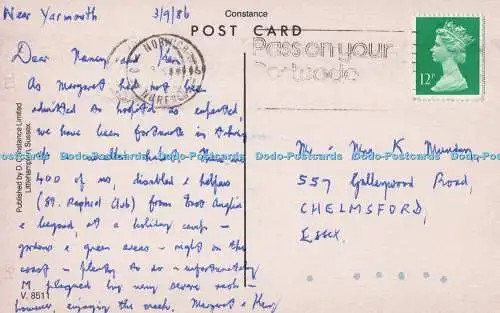 Near Yarmouth 3/9/86
Constance
POST CARD
Dear Nancy and
As Margaret had not been
admitted to hospital as expected,
we have been fortunate in
of
400 of us, disabled & helpers
(St. Raphael Club) from East Anglia
& beyond, at a holiday camp -
gardens & green areas - right on the
coast - plenty to do - unfortunately
M plagued by very severe rash -
however, enjoying the week. Margaret & Ken
NORWICH
NORFOLK
Pass on your
Postcode
12P
Mr & Mrs K
557 Galleywood Road,
CHELMSFORD,
ESSEX.
Published by D. Constance Limited
Littlehampton, Sussex
V. 8511
Dodo-Postcards Dodo-Postcards Dodo-Postcards Dodo-Postcards Dodo-Postcards